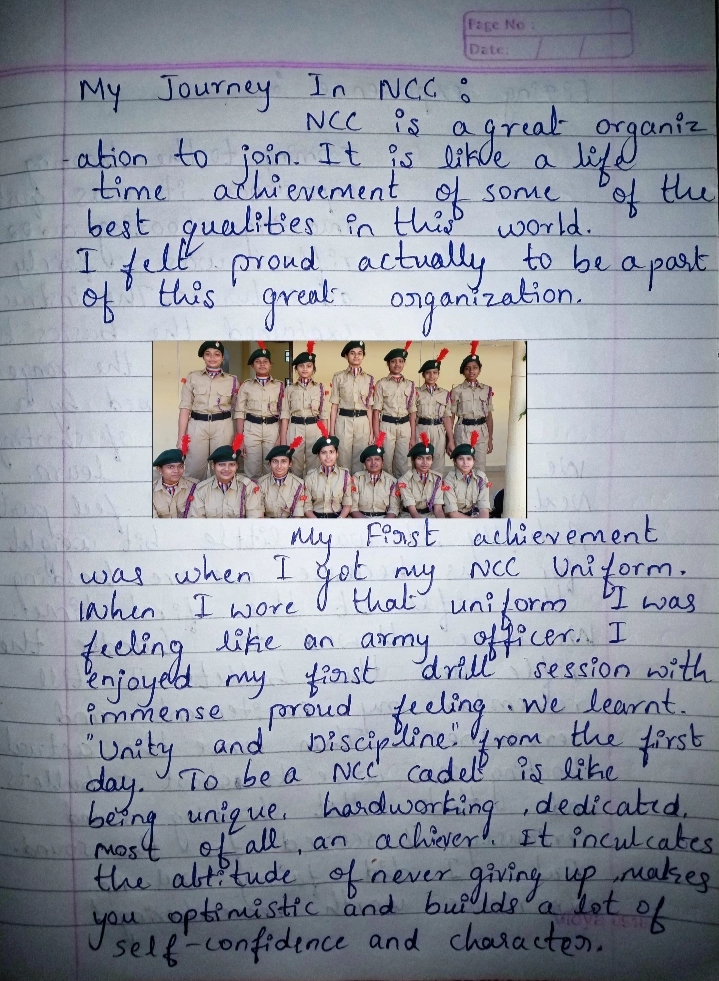 Page No :
Date: / /
My Journey In NCC :
NCC is a great organiz
-ation to join. It is like a life
time achievement of some of the
best qualities in this world.
I felt proud actually to be a part
of this great organization.
My First achievement
was when I got my NCC Uniform.
When I wore that uniform I was
feeling like an army officer. I
enjoyed my first drill session with
immense proud feeling. We learnt.
"Unity and Discipline" from the first
day. To be a NCC cadet is like
being unique, hardworking, dedicated,
most of all, an achiever. It inculcates
the abtitude of never giving up, makes
you optimistic and builds a lot of
self-confidence and character.